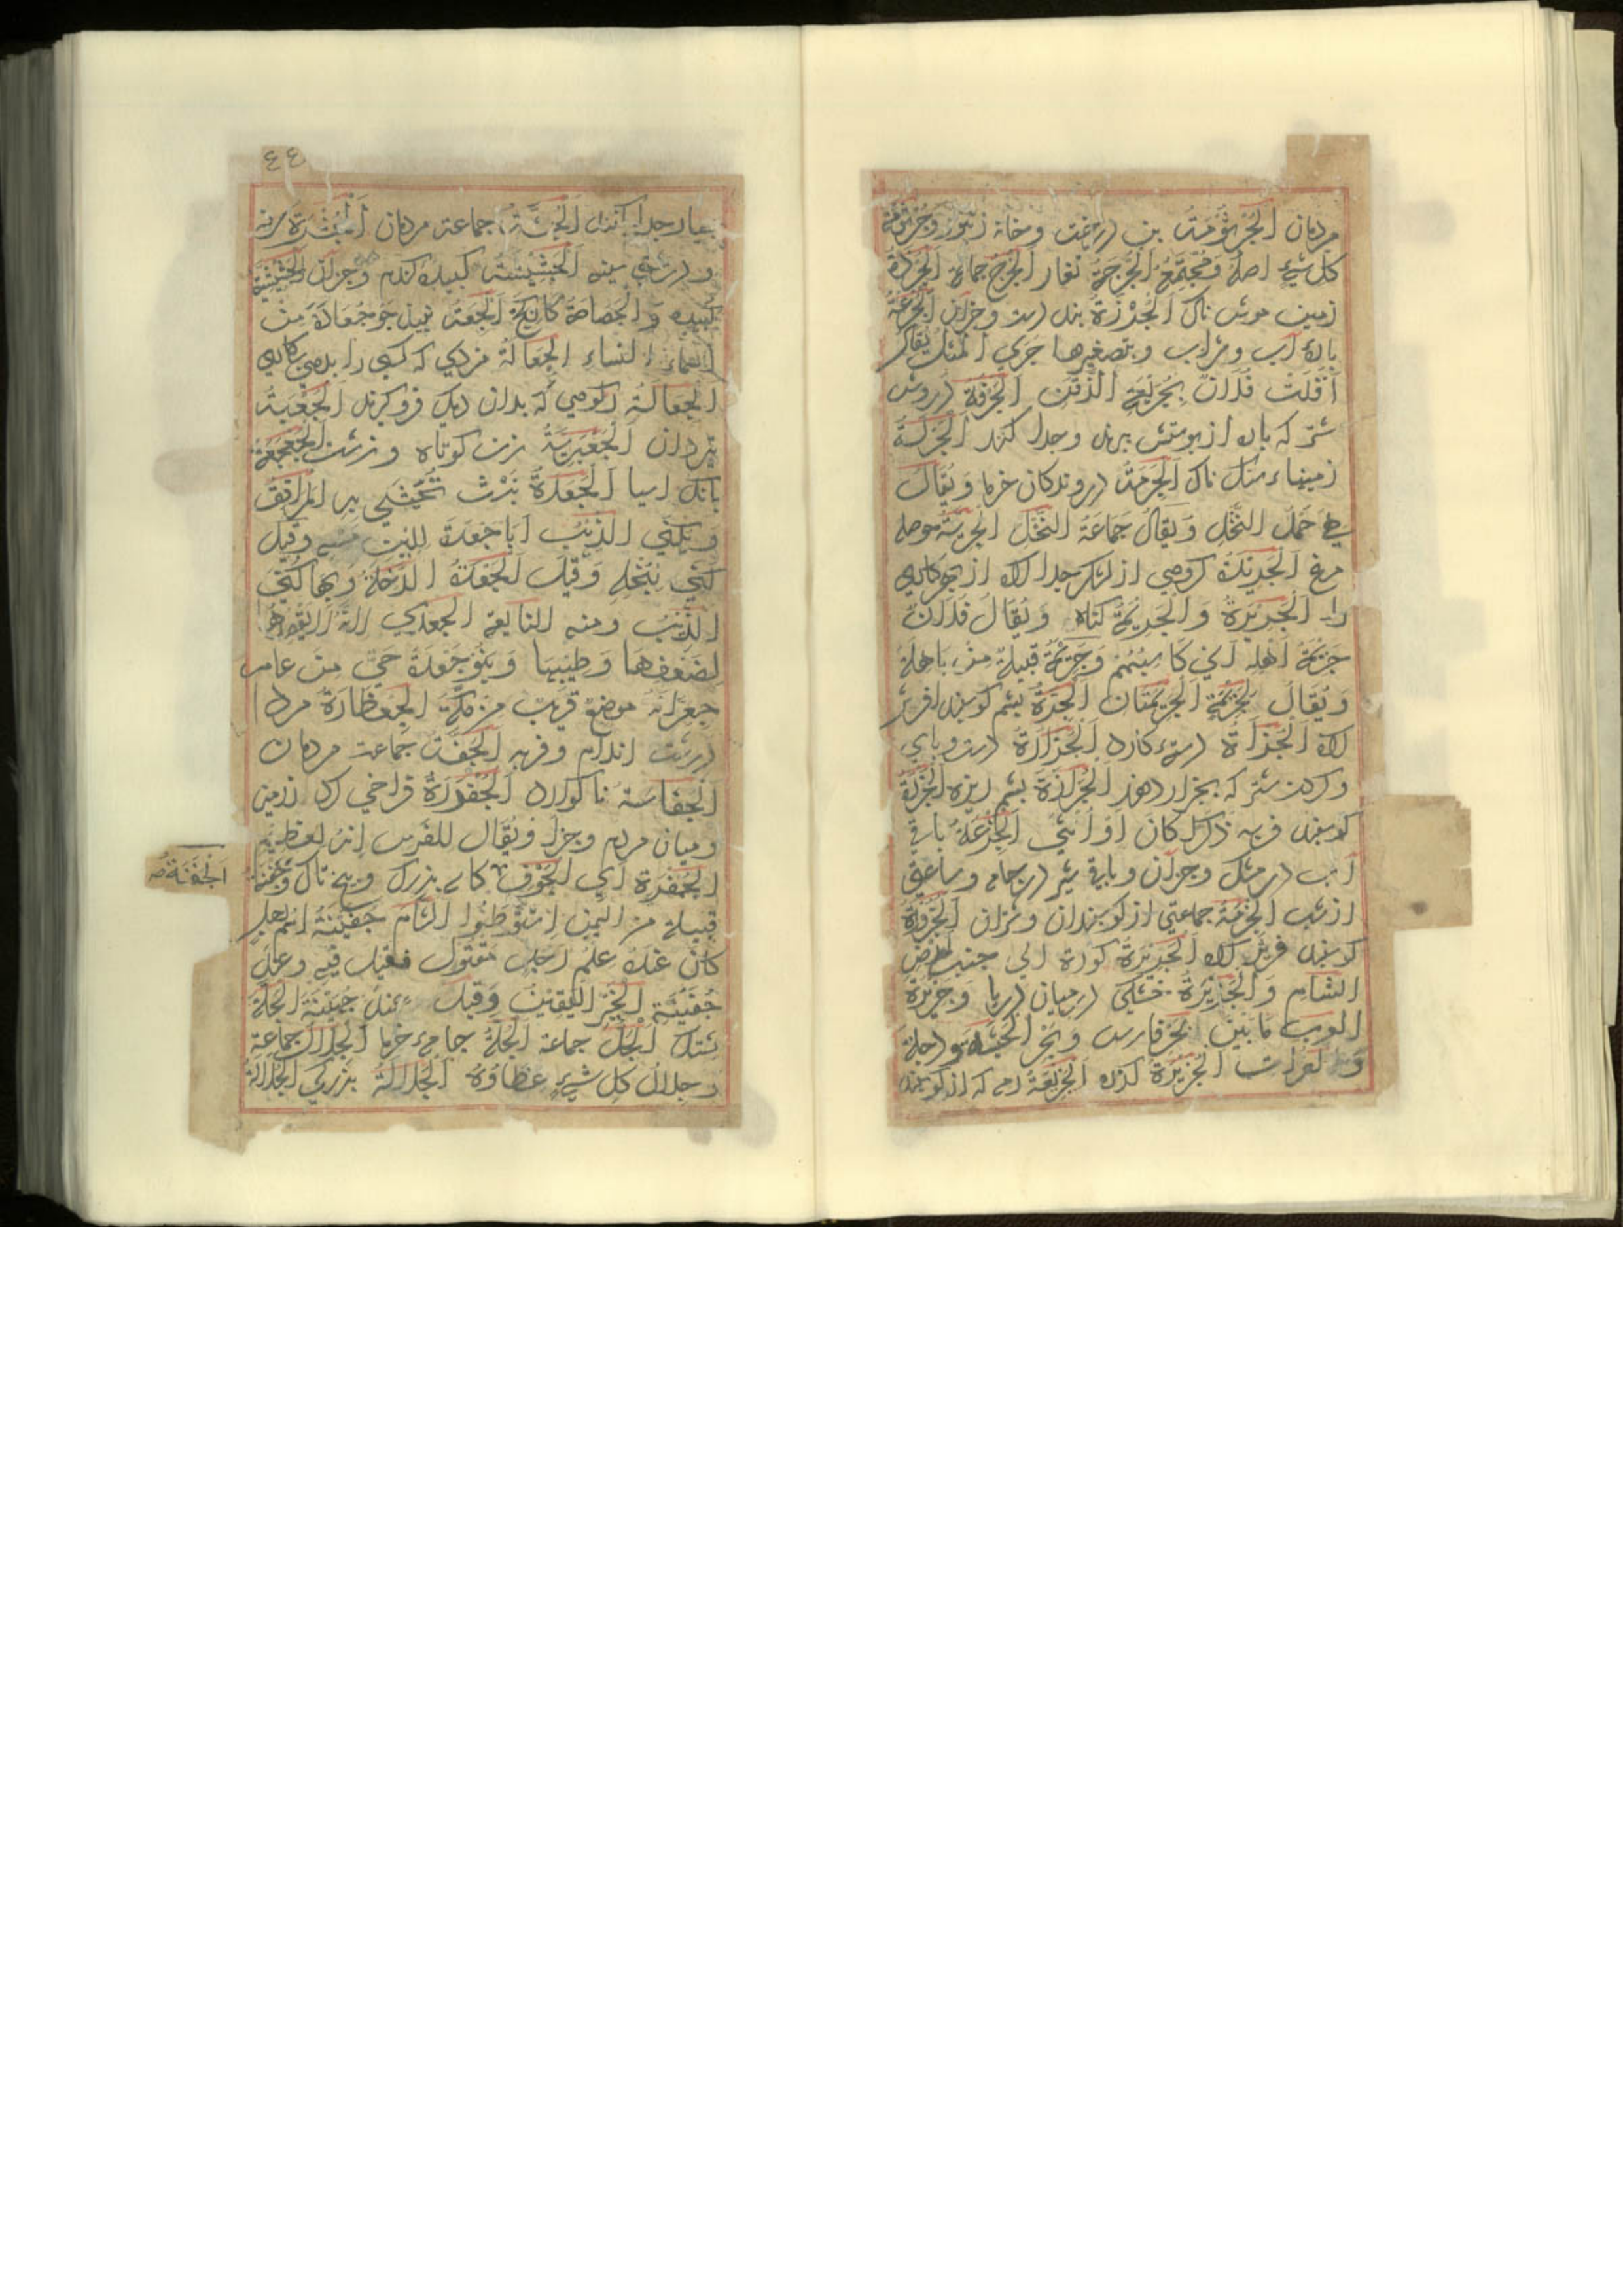 مردمان اَلْجُرْثُومَةُ بن درخت وخانه زنبور وَجُرْثُومَةُ
كل شيءٍ اصلهُ وَمُجْتَمَعُهُ الجُرْجَةُ تغار الخُرْجُ جماعة الجَرَدَةُ
زمين موش ناك اَلْجُرْزَةُ بند دست وجزان الجُرْعَةُ
بارهٔ آب وشراب وبتصغيرها جرى المثل يُقال
اَفْلَتَ فُلَانٌ بِجُرَيْعَةِ الذَّقَنِ اَلْجَرْفَةُ درويش
شتر كه باره از پوستش ببرند وجدا كنند اَلْجَرَلَةُ
زمينهاء سنگ ناك اَلْجَرَمَةُ دروندكان خرما وَيُقَالُ
حَمْلُ النَّخْلِ وَيُقَالُ جَمَاعَةُ النَّخْلِ الجِرِّيَّةُ حوصله
مرغ اَلْجَرِيدَةُ كروهي از لشكر جدا كرده از بهر كارى
را اَلْجَرِيرَةُ وَالْجَرِيمَةُ كناه وَيُقَالُ فُلَانٌ
جَرِيمَةُ اَهْلِهِ اَىْ كَاسِبُهُمْ وَجَرِيمَةُ قبيلةٌ من باهلة
وَيُقَالُ الجَرِيمَتَانِ الجِزَّةُ پشم كوسپند افريز
كرده اَلْجُزْأَةُ دستهٔ كارد اَلْجُزَارَةُ دست وپاى
وكردن شتر كه بجزار دهند اَلْجُزَازَةُ پشم ريزه اَلْجَزْرَةُ
كوسپند فربه ذكرا كان اَوْ اُنْثَى اَلْجُزْعَةُ باقى
آب در مشك وجزان وباقى شير در جامه وساعتى
از شب الجِزْمَةُ جماعتى از كوسپندان وشتران الجَزُوزَةُ
كوسپند كرده اَلْجَزِيرَةُ كورة الى جنب ارض
الشام وَالْجَزِيرَةُ خشكى در ميان دريا وَجَزِيرَةُ
العرب مَا بَيْنَ بَحْرِ فارس وبَحْرِ الحَبَشَةِ ودجلة
وَالفرات الجَزِيعَةُ رمه كه از كوسپند
٤٤
بسيار جدا كنند اَلْجُشَّةُ جماعة مردمان اَلْجُشْرَةُ
ودرشتى سينه اَلْجَشِيشَةُ كبيده كندم وجزان
وَالْجَصَّاصَةُ كان كچ اَلْجِعَةُ نبيذ جو جُعَادَةُ من
اسماء النساء الجِعَالَةُ مزدى كه كسى را بدهى بر كارى
اَلْجِعَالَةُ ركوبى كه بدان ديك فرو كيرند اَلْجَعْبَةُ
تيردان اَلْجَعْبَرِيَّةُ زن كوتاه وزشت اَلْجَعْجَعَةُ
بانك اسيا اَلْجَعْدَةُ نَبْتٌ تُحْشَى بِهِ المرافق
وَيُكَنَّى الذِّئْبُ اَبَا جَعْدَةَ وقيل
كُنِّيَ بِبُخْلِهِ وَقِيلَ اَلْجَعْدَةُ الرِّخْلَةُ وَبِهَا كُنِّيَ
الذِّئْبُ ومنه النابغة الجعدي
لِضَعْفِهَا وَطِيبِهَا وَبَنُو جَعْدَةَ حَيٌّ من عامر
جِعْرَانَةُ موضع قريب من مكّةَ الجِعْظَارَةُ مردا
درشت اندام وفربه الجُفَّةُ جماعة مردمان
اَلْجُفَاسَةُ ناكوارد اَلْجُفْرَةُ فراخي كرد زمين
وميان مردم وجزا وَيُقَال للفرس اِنَّهُ لعظيم
الجُفْرَةِ اَيِ الجَوْفِ كاسه بزرك وبيخ تاك وَجَفْنَةُ
قبيلة من اليمن اِسْتَوْطَنُوا الشام جُفَيْنَةُ اسم رجل
كان عنده علم رجل مقتول فقيل فيه وعند
جُفَيْنَةَ الخَبَرُ اليَقِينُ وَقيل عند جُهَيْنَةَ الجُلَّةُ
پشتك اَلْجُلُّ جماعة الجُلَّةُ جامهٔ خرما اَلْجِلَالُ جماعة
وجلال كل شيءٍ غطاؤهُ اَلْجَلَالَةُ بزركى الجلالة
اَلْجَفْنَةُ صح